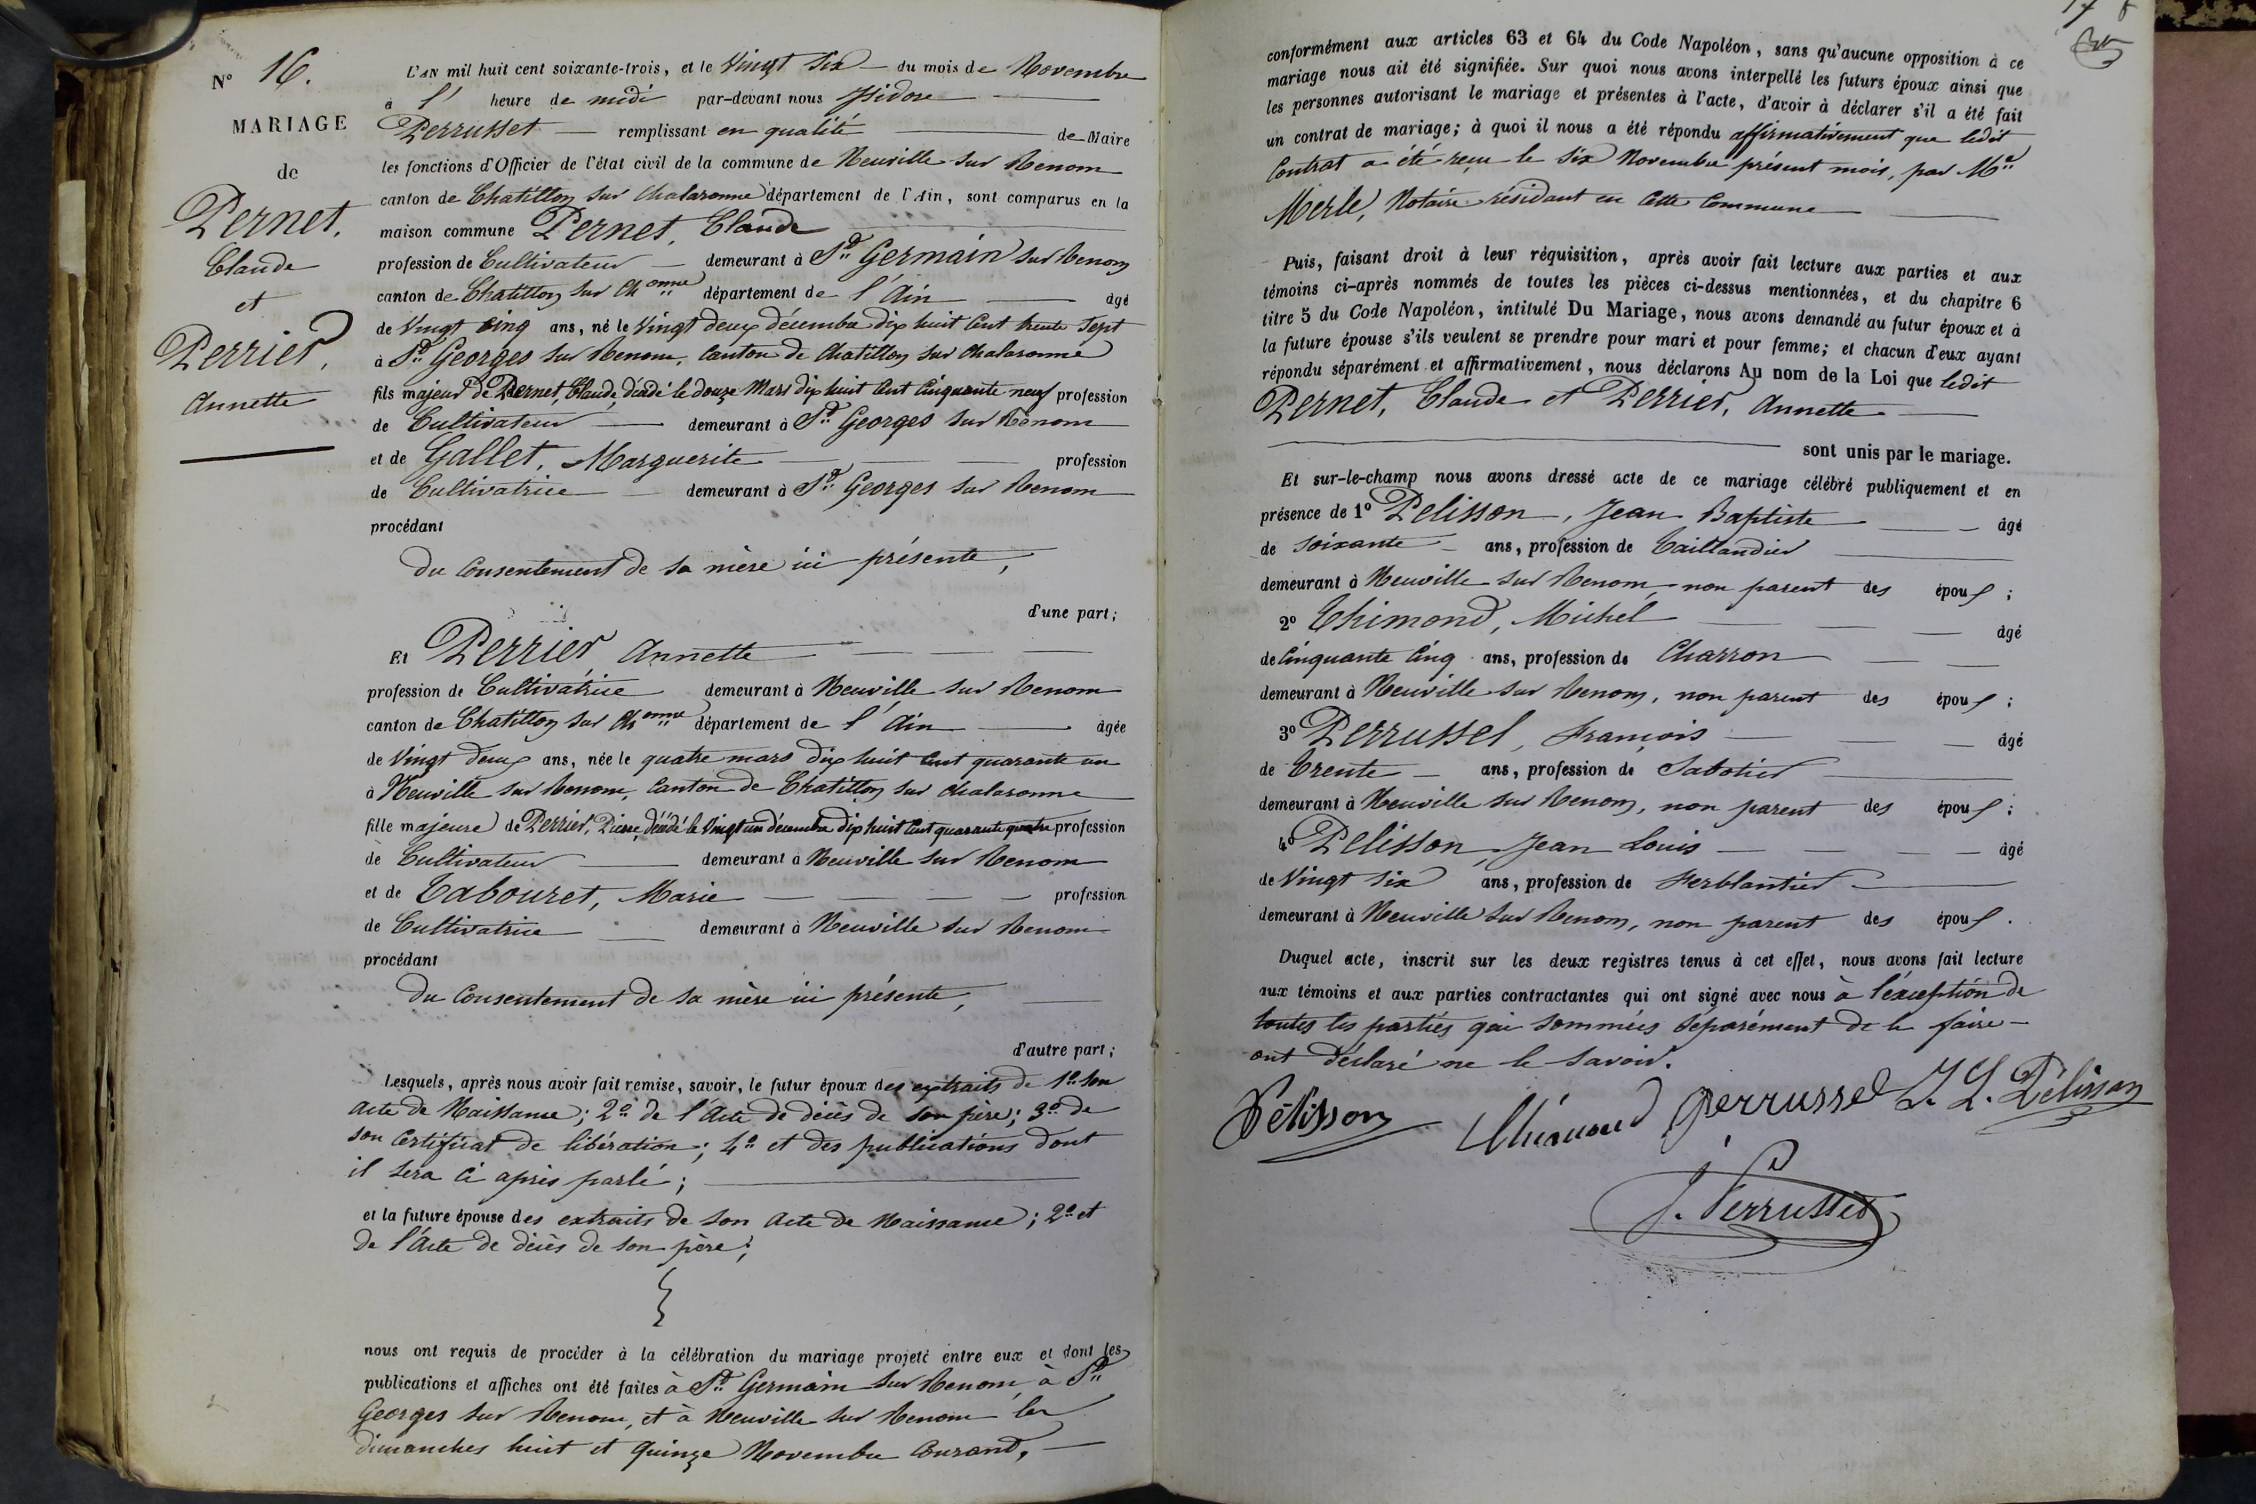 N° 16.
MARIAGE
de
Pernet,
Claude
et
Perrier,
Annette
L'AN mil huit cent soixante-trois, et le Vingt Six du mois de Novembre
à l' heure de midi par-devant nous Isidore
Perrusset remplissant en qualité de Maire
les fonctions d'Officier de l'état civil de la commune de Neuville sur Renom
canton de Chatillon sur Chalaronne département de l'Ain, sont comparus en la
maison commune Pernet, Claude
profession de Cultivateur demeurant à St Germain sur Renom
canton de Chatillon sur Chonne département de l'Ain âgé
de Vingt cinq ans, né le Vingt deux décembre dix huit Cent trente Sept
à St Georges sur Renom, Canton de Chatillon sur Chalaronne
fils majeur de Pernet, Claude, décédé le douze Mars dix huit Cent Cinquante neuf profession
de Cultivateur demeurant à St Georges sur Renom
et de Gallet, Marguerite profession
de Cultivatrice demeurant à St Georges sur Renom
procédant
du Consentement de sa mère ici présente,
d'une part;
Et Perrier, Annette
profession de Cultivatrice demeurant à Neuville sur Renom
canton de Chatillon sur Chonne département de l'Ain âgée
de Vingt deux ans, née le quatre mars dix huit Cent quarante un
à Neuville sur Renom, Canton de Chatillon sur Chalaronne
fille majeure de Perrier, Pierre, décédé le Vingt un décembre dix huit Cent quarante quatre profession
de Cultivateur demeurant à Neuville sur Renom
et de Tabouret, Marie profession
de Cultivatrice demeurant à Neuville sur Renom
procédant
du Consentement de sa mère ici présente,
d'autre part;
Lesquels, après nous avoir fait remise, savoir, le futur époux des extraits de 1° Son
acte de Naissance; 2° de l'Acte de décès de Son père; 3° de
son Certificat de libération; 4° et des publications dont
il sera ci après parlé;
et la future épouse des extraits de Son Acte de Naissance; 2° et
de l'Acte de décès de Son père;
nous ont requis de procéder à la célébration du mariage projeté entre eux et dont les
publications et affiches ont été faites à St Germain sur Renom, à St
Georges sur Renom, et à Neuville sur Renom les
dimanches huit et Quinze Novembre Courant,
conformément aux articles 63 et 64 du Code Napoléon, sans qu'aucune opposition à ce
mariage nous ait été signifiée. Sur quoi nous avons interpellé les futurs époux ainsi que
les personnes autorisant le mariage et présentes à l'acte, d'avoir à déclarer s'il a été fait
un contrat de mariage; à quoi il nous a été répondu affirmativement que ledit
Contrat a été reçu le six Novembre présent mois, par Me
Merle, Notaire résidant en Cette Commune
Puis, faisant droit à leur réquisition, après avoir fait lecture aux parties et aux
témoins ci-après nommés de toutes les pièces ci-dessus mentionnées, et du chapitre 6
titre 5 du Code Napoléon, intitulé Du Mariage, nous avons demandé au futur époux et à
la future épouse s'ils veulent se prendre pour mari et pour femme; et chacun d'eux ayant
répondu séparément et affirmativement, nous déclarons Au nom de la Loi que ledit
Pernet, Claude et Perrier, Annette
sont unis par le mariage.
Et sur-le-champ nous avons dressé acte de ce mariage célébré publiquement et en
présence de 1° Pelisson, Jean Baptiste âgé
de Soixante ans, profession de Taillandier
demeurant à Neuville sur Renom, non parent des époux;
2° Thimond, Michel âgé
de Cinquante Cinq ans, profession de Charron
demeurant à Neuville sur Renom, non parent des époux;
3° Perrussel, François âgé
de Trente ans, profession de Sabotier
demeurant à Neuville sur Renom, non parent des époux;
4° Pelisson, Jean Louis âgé
de Vingt Six ans, profession de Ferblantier
demeurant à Neuville sur Renom, non parent des époux.
Duquel acte, inscrit sur les deux registres tenus à cet effet, nous avons fait lecture
aux témoins et aux parties contractantes qui ont signé avec nous à l'exception de
toutes les parties qui sommées séparément de le faire
ont déclaré ne le savoir.
Pélisson Thimond Perrussel J. L. Pélisson
J. Perrusset